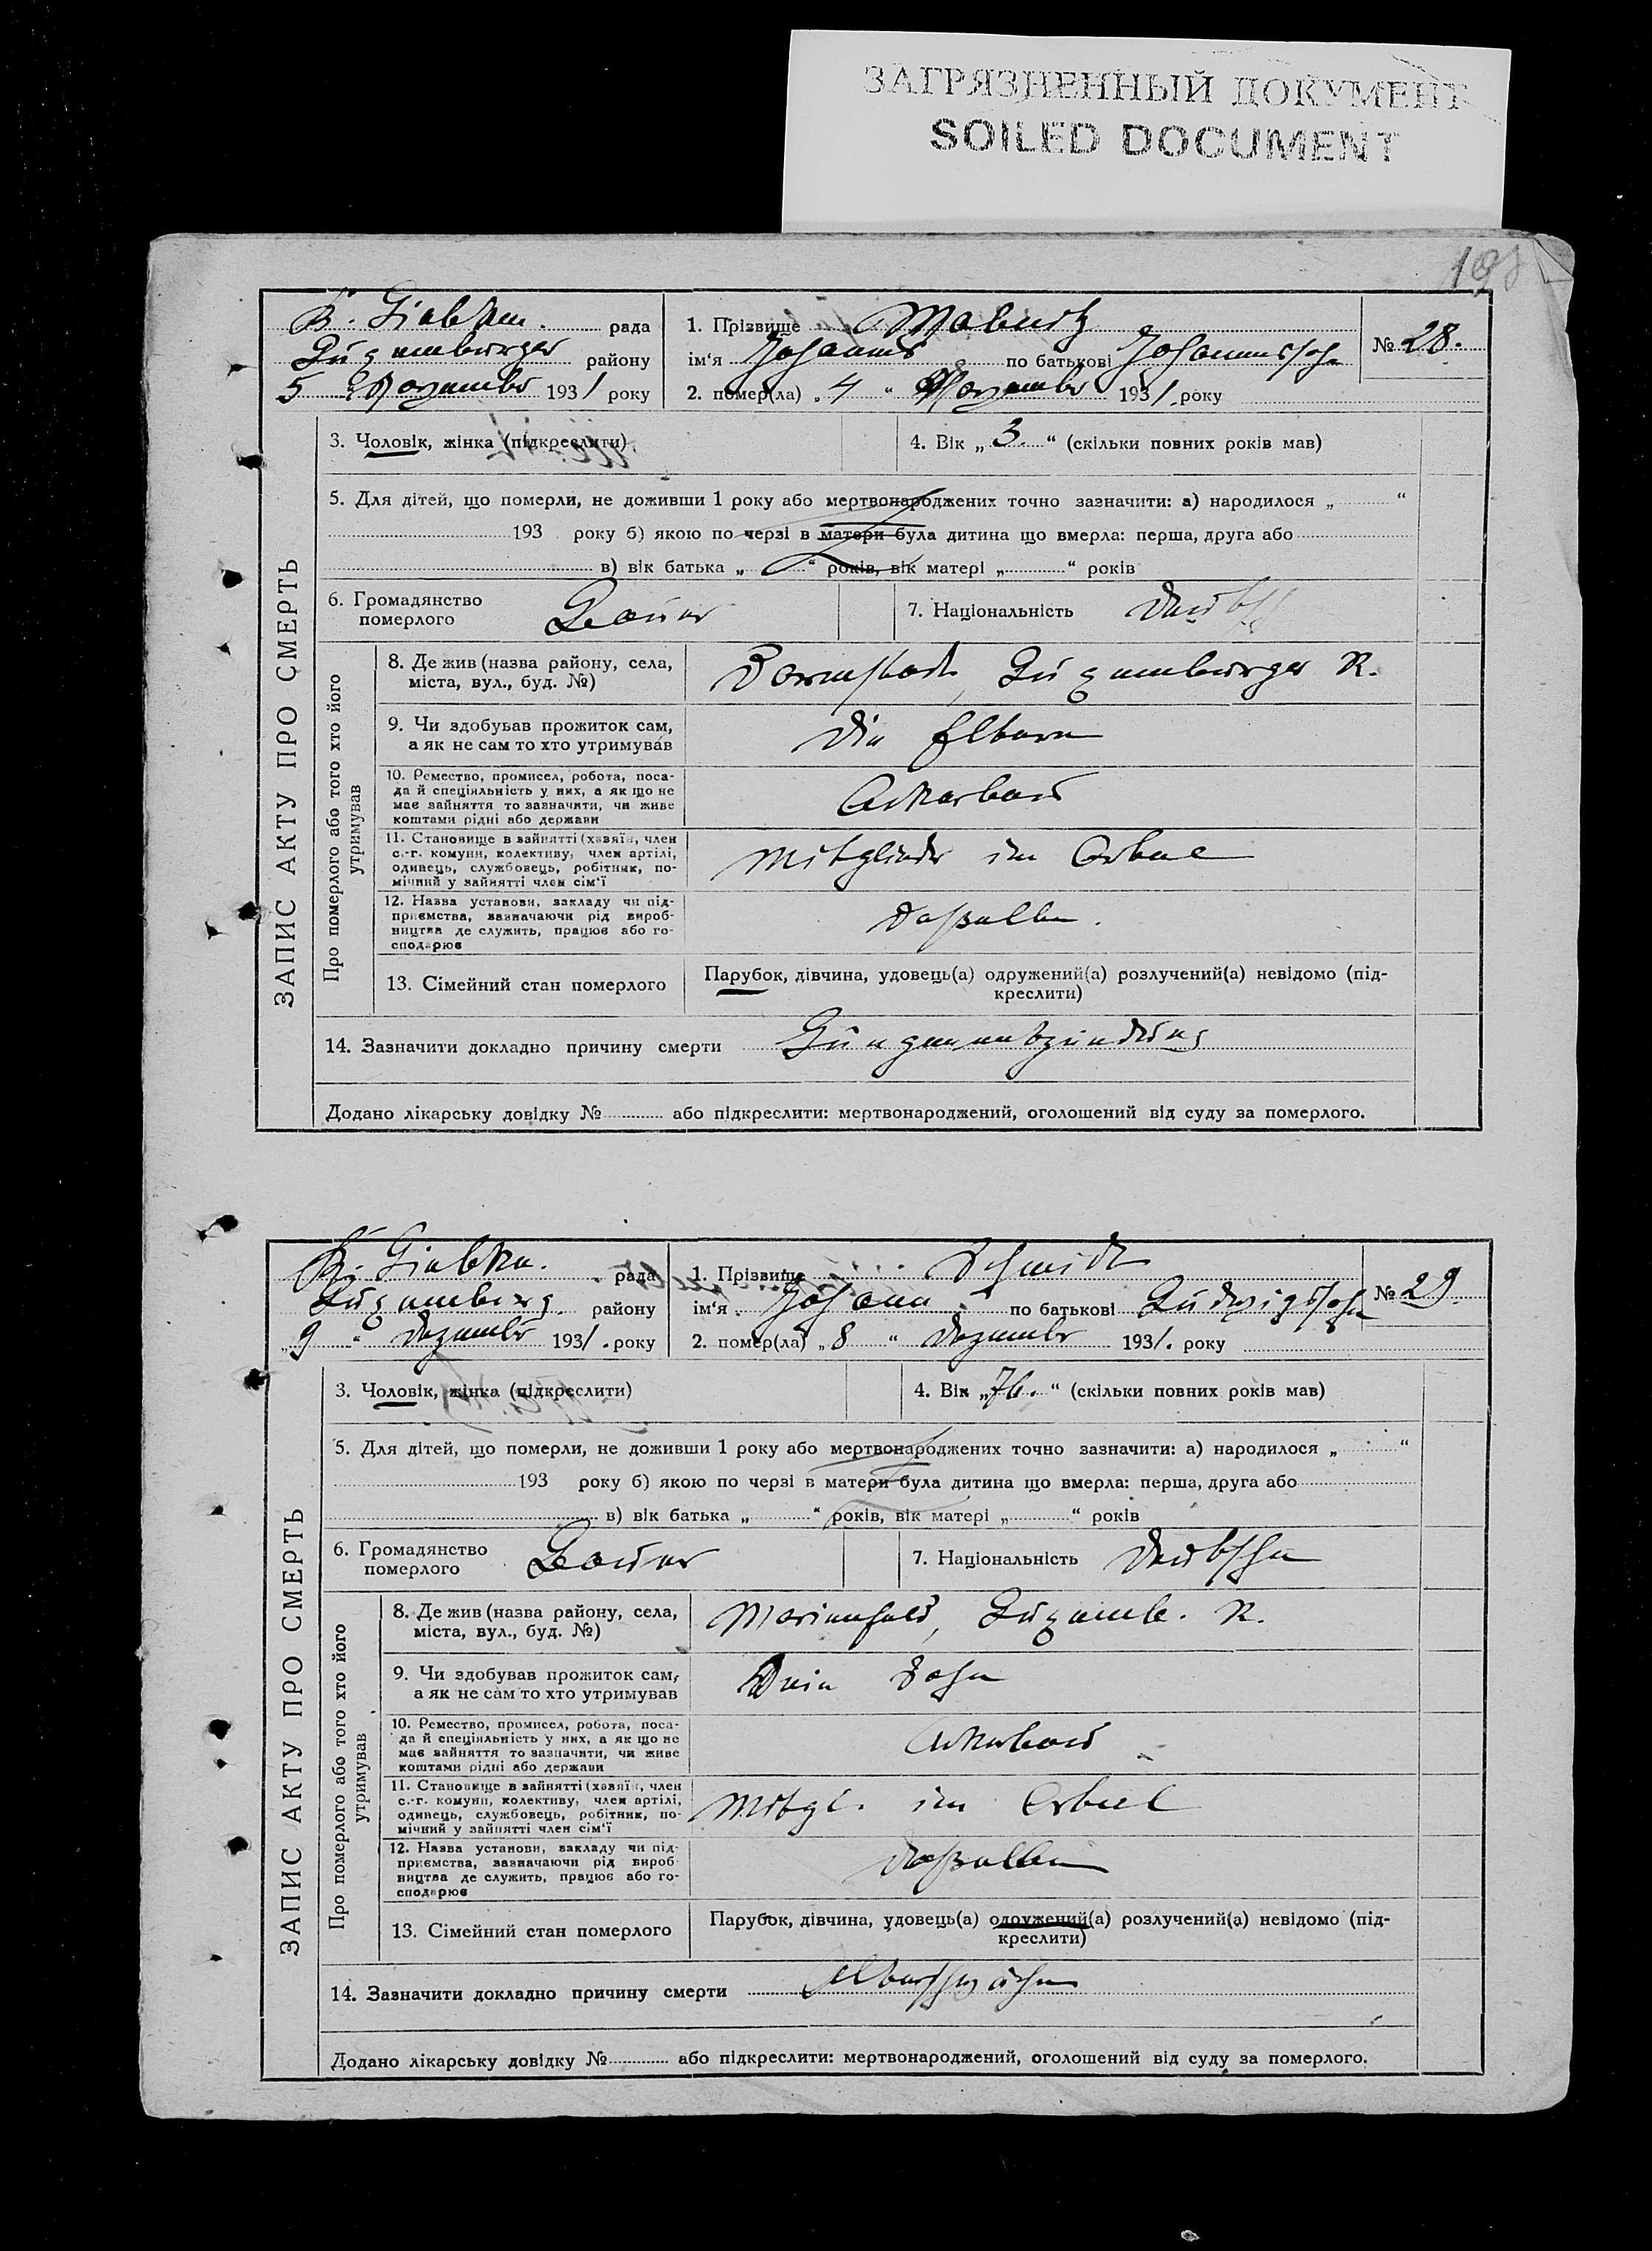 ЗАГРЯЗНЕННЫЙ ДОКУМЕНТ
SOILED DOCUMENT
198
рада
Luxemburger району
5 Dezember 1931 року
1. Прізвище
ім'я Johannes по батькові Johannessohn
2. помер(ла) „ 4 “ Dezember 1931. року
№ 28.
ЗАПИС АКТУ ПРО СМЕРТЬ
3. Чоловік, жінка (підкреслити)
4. Вік „ 3. “ (скільки повних років мав)
5. Для дітей, що померли, не доживши 1 року або мертвонароджених точно зазначити: а) народилося „ “
193 року б) якою по черзі в матери була дитина що вмерла: перша, друга або
в) вік батька „ “ років, вік матері „ “ років
6. Громадянство
померлого
Bauer
7. Національність Deutsch
Про померлого або того хто його
утримував
8. Де жив (назва району, села,
міста, вул., буд. №)
Darmstadt, Luxemburger R.
9. Чи здобував прожиток сам,
а як не сам то хто утримував
die Eltern
10. Ремество, промисел, робота, поса-
да й спеціяльність у них, а як що не
має зайняття то зазначити, чи живе
коштами рідні або держави
Ackerbau
11. Становище в зайнятті (хазяїн, член
с.-г. комуни, колективу, член артілі,
одинець, службовець, робітник, по-
мічний у зайнятті член сім'ї
Mitglieder im Artel
12. Назва установи, закладу чи під-
приємства, зазначаючи рід вироб-
ництва де служить, працює або го-
сподарює
dasselbe.
13. Сімейний стан померлого
Парубок, дівчина, удовець(а) одружений(а) розлучений(а) невідомо (під-
креслити)
14. Зазначити докладно причину смерти Lungenentzündung
Додано лікарську довідку № або підкреслити: мертвонароджений, оголошений від суду за померлого.
рада
Luxemburg. району
„ 9 “ Dezember 1931. року
1. Прізвище Schmidt
ім'я Johann по батькові Ludwigssohn
2. помер(ла) „ 8 “ Dezember 1931. року
№ 29.
ЗАПИС АКТУ ПРО СМЕРТЬ
3. Чоловік, жінка (підкреслити)
4. Вік „ 76. “ (скільки повних років мав)
5. Для дітей, що померли, не доживши 1 року або мертвонароджених точно зазначити: а) народилося „ “
193 року б) якою по черзі в матери була дитина що вмерла: перша, друга або
в) вік батька „ “ років, вік матері „ “ років
6. Громадянство
померлого
Bauer
7. Національність Deutscher
Про померлого або того хто його
утримував
8. Де жив (назва району, села,
міста, вул., буд. №)
Marienfeld, Luxemb. R.
9. Чи здобував прожиток сам,
а як не сам то хто утримував
Sohn
10. Ремество, промисел, робота, поса-
да й спеціяльність у них, а як що не
має зайняття то зазначити, чи живе
коштами рідні або держави
Ackerbau
11. Становище в зайнятті (хазяїн, член
с.-г. комуни, колективу, член артілі,
одинець, службовець, робітник, по-
мічний у зайнятті член сім'ї
Mitgl. im Artel
12. Назва установи, закладу чи під-
приємства, зазначаючи рід вироб-
ництва де служить, працює або го-
сподарює
dasselbe
13. Сімейний стан померлого
Парубок, дівчина, удовець(а) одружений(а) розлучений(а) невідомо (під-
креслити)
14. Зазначити докладно причину смерти Altersschwäche
Додано лікарську довідку № або підкреслити: мертвонароджений, оголошений від суду за померлого.